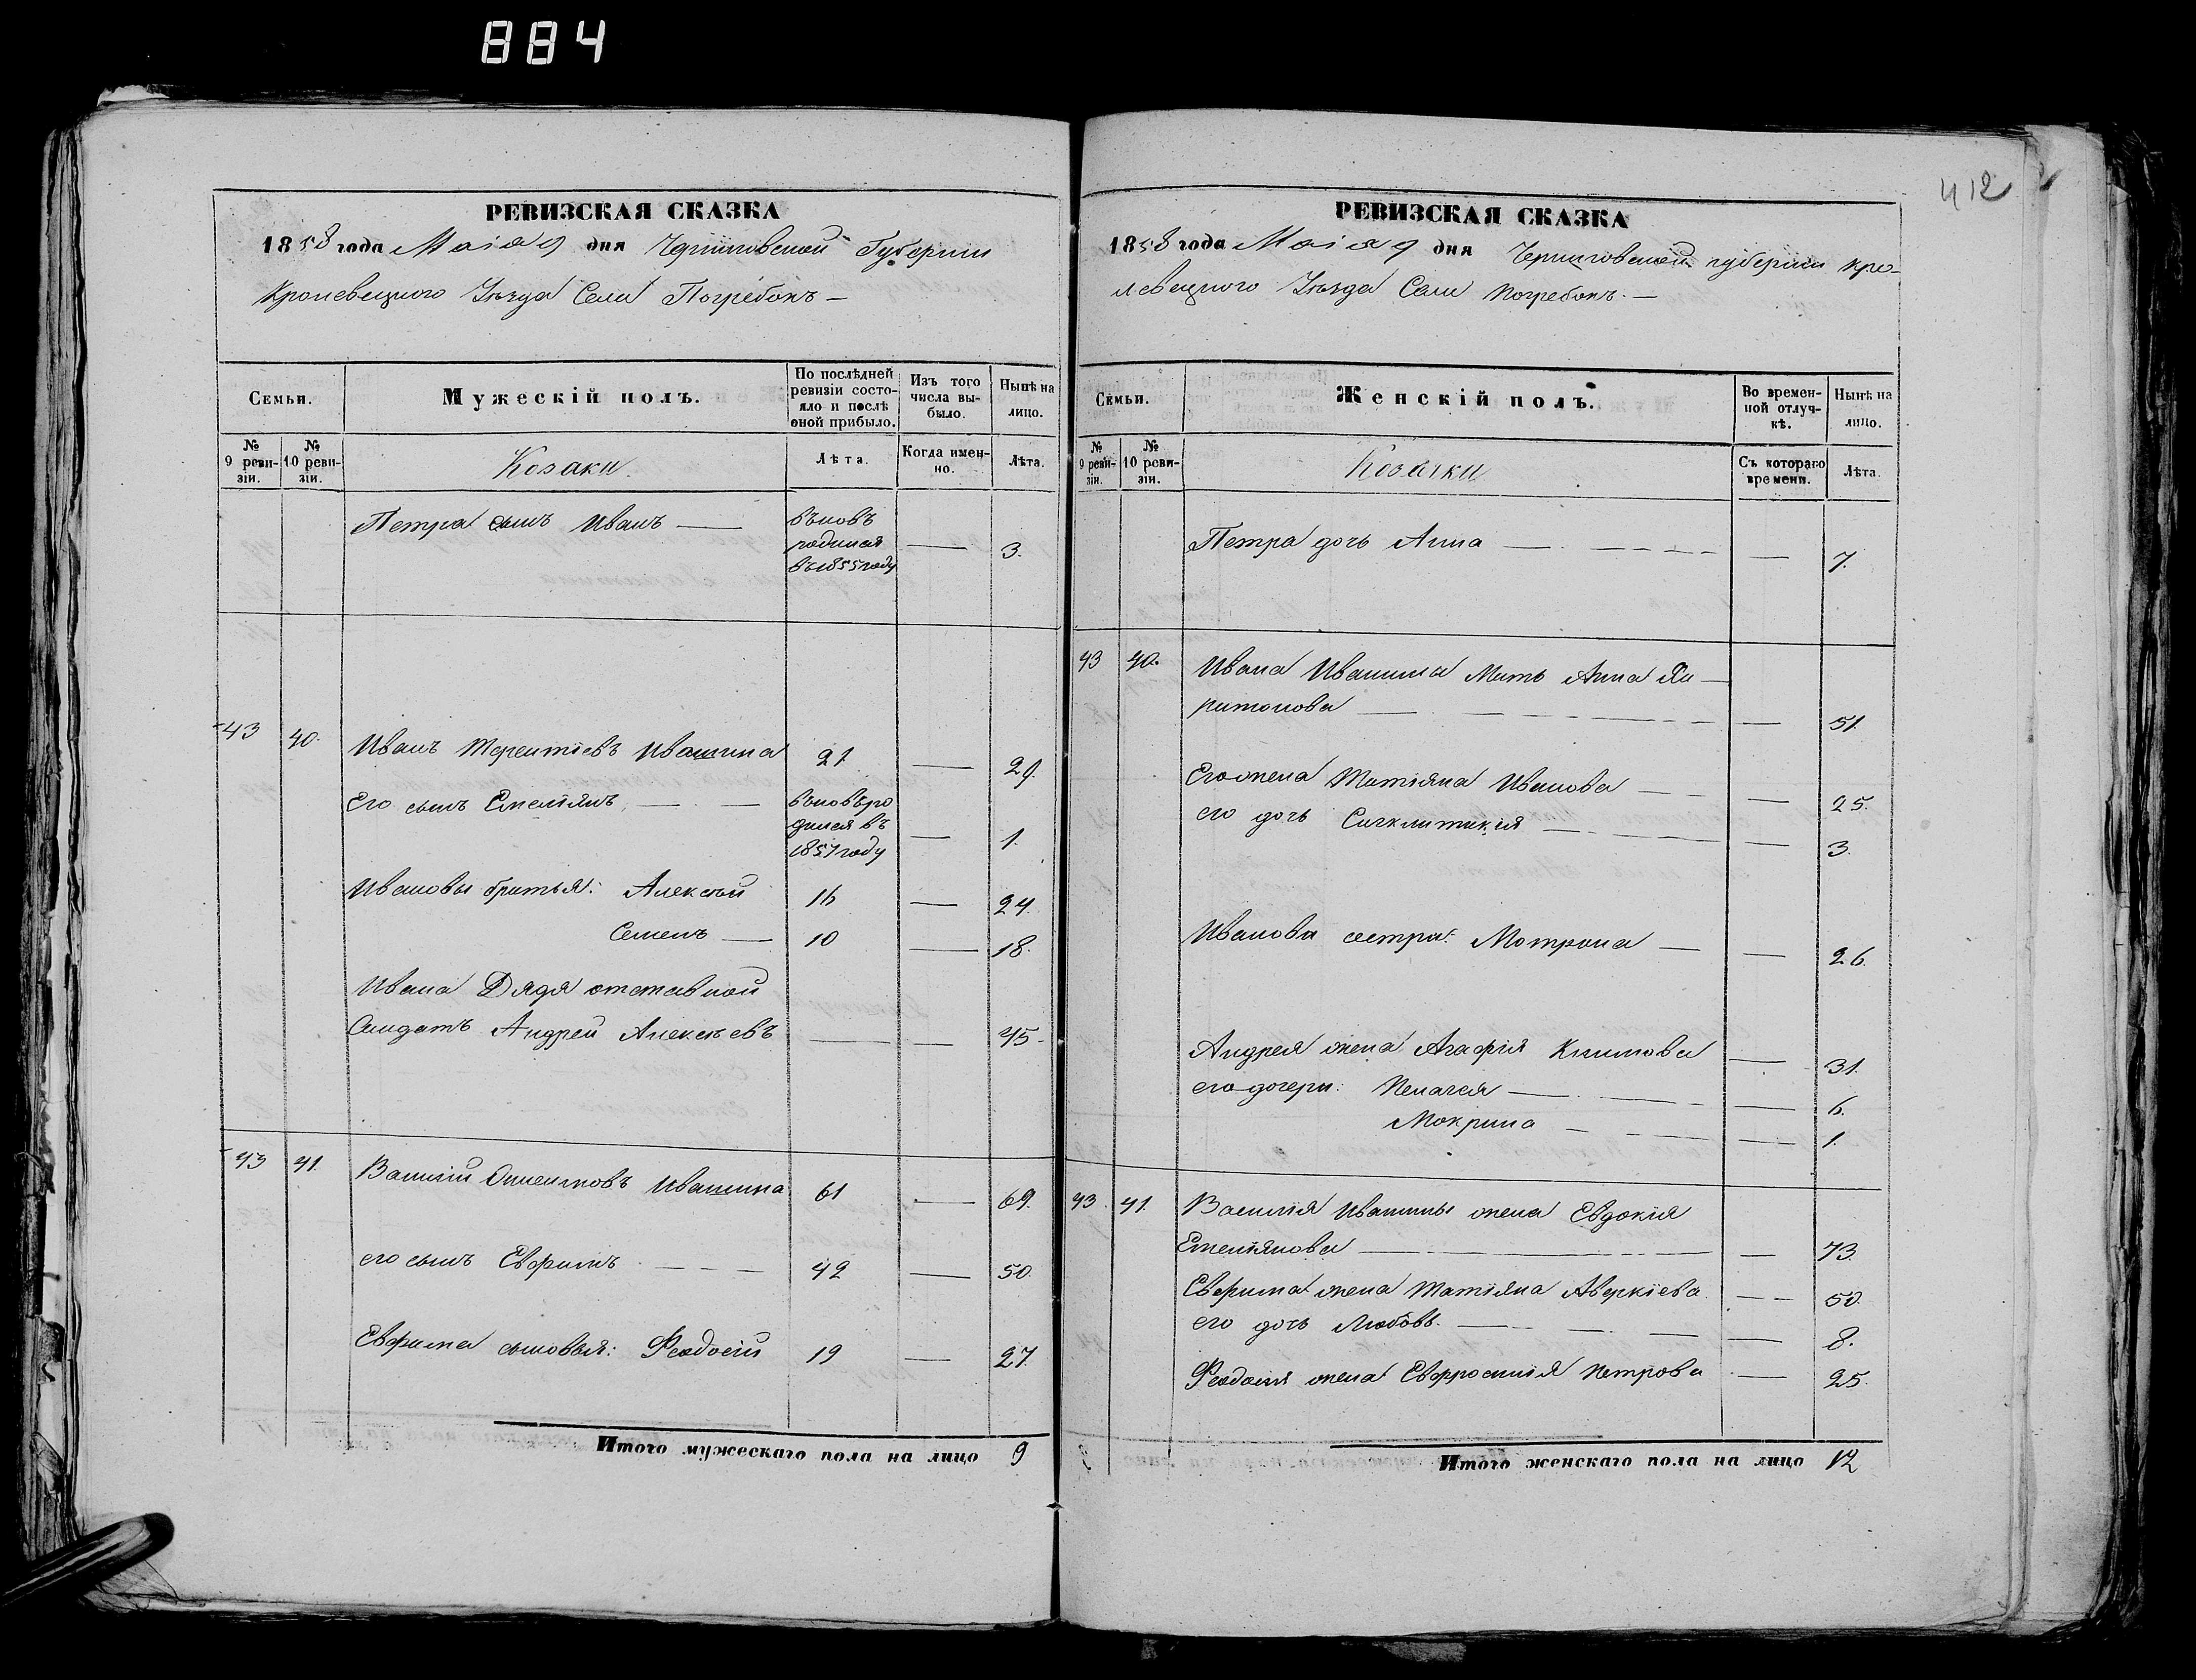 884
412
РЕВИЗСКАЯ СКАЗКА
1858 года Маія 9 дня Черниговской Губерніи
Кролевецкого Уѣзда Села Погребокъ —
Семьи.
Мужескій полъ.
По послѣдней ревизіи состояло и послѣ оной прибыло.
Изъ того числа выбыло.
Нынѣ на лицо.
№ 9 ревизіи.
№ 10 ревизіи.
Козаки
Лѣта.
Когда именно.
Лѣта.
Петра сынъ Иванъ — вновь родился въ 1855 году — 3.
43 40. Иванъ Терентіевъ Ивашина 21 — 29.
Его сынъ Емеліянъ — вновь ро
дился въ
1857 году — 1.
Ивановы братья: Алексѣй 16 — 24.
Семенъ — 10 — 18.
Ивана Дядя отставной
Солдатъ Андрей Алексѣевъ — — 45.
43 41. Василій Ивашина 61 — 69.
его сынъ Евфимъ — 42 — 50.
Евфима сыновья: Феодосій 19 — 27.
Итого мужескаго пола на лицо 9
РЕВИЗСКАЯ СКАЗКА
1858 года Маія 9 дня Черниговской губерніи Кро-
левецкого Уѣзда Села Погребокъ. —
Семьи.
Женскій полъ.
Во временной отлучкѣ.
Нынѣ на лицо.
№ 9 ревизіи.
№ 10 ревизіи.
Козачки
Съ котораго времени.
Лѣта.
Петра дочь Анна — — 7.
43 40. Ивана Ивашины Мать Анна Ха-
ритонова — — 51.
Его жена Татіяна Иванова — — 25.
его дочь Сигклитикія — — 3.
Иванова сестра: Мотрона — — 26.
Андрея жена Агафія Климова — 31.
его дочери: Пелагея — — 6.
Мокрина — — 1.
43 41. Василія Ивашины жена Евдокія
Емеліянова — — 73.
Евфима жена Татіяна Аверкіева — 50.
его дочь Любовь — — 8.
Феодосія жена Евфросинія Петрова — 25.
Итого женскаго пола на лицо 12